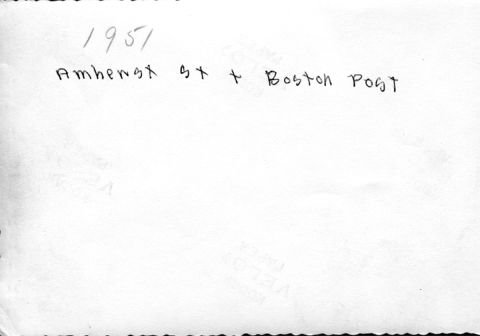 1951
Amherst st + Boston Post